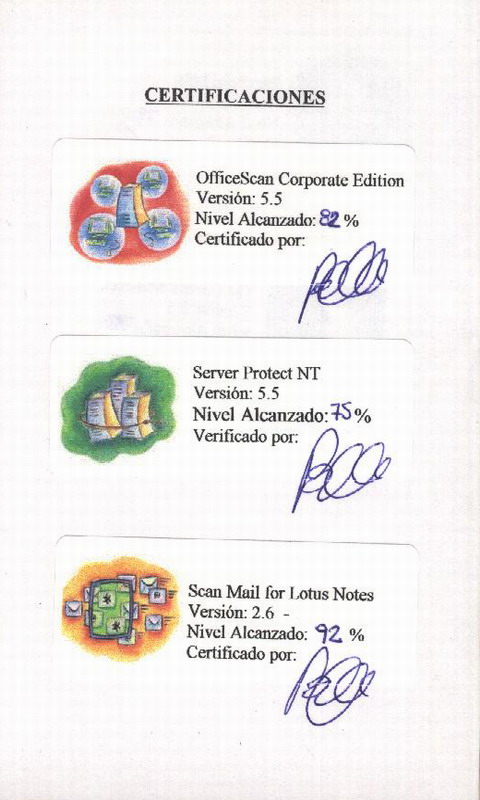 CERTIFICACIONES
OfficeScan Corporate Edition
Versión: 5.5
Nivel Alcanzado: 82 %
Certificado por:
Server Protect NT
Versión: 5.5
Nivel Alcanzado: 75 %
Verificado por:
Scan Mail for Lotus Notes
Versión: 2.6 -
Nivel Alcanzado: 92 %
Certificado por: